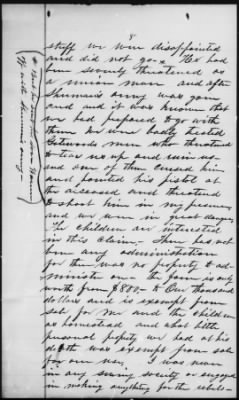 8
stuff we were disappointed
and did not go. He had
been severely threatened as
a union man and after
Sherman's army was gone
and and it was known that
we had prepared to go with
them we were badly treated
men who threatened
to tear us up and ruin us
and one of them cursed him
and pointed his pistol at
the deceased and threatened
to shoot him in my presence
and we were in great danger.
The children are interested
in this claim. There has not
been any administration
for there was no property to ad-
minister on. The farm is only
worth from $800.- to One thousand
dollars and is exempt from
sale for me and the children
as homestead and what little
personal property we had at his
death was exempt from sale
for our use. I was never
in any sewing society or engaged
in making anything for the rebel-
off with Sherman's army-